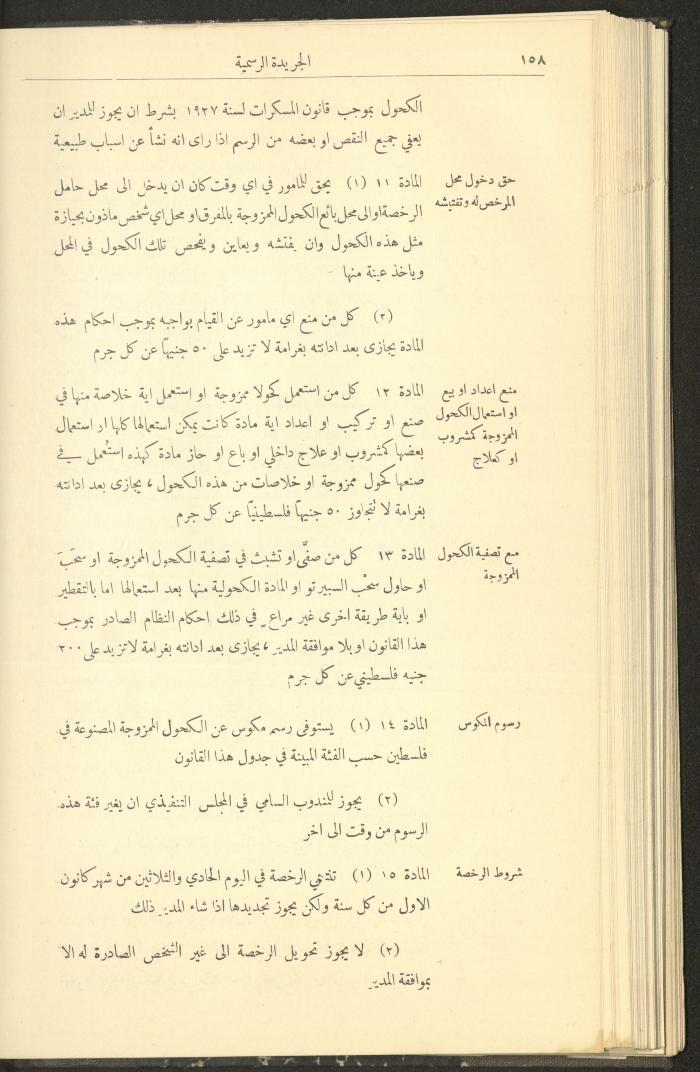 ١٥٨
الجريدة الرسمية
الكحول بموجب قانون المسكرات لسنة ١٩٢٧ بشرط ان يجوز للمدير ان
يعفي جميع النقص او بعضه من الرسم اذا راى انه نشأ عن اسباب طبيعية
حق دخول محل
المرخص له وتفتيشه
المادة ١١ (١) يحق للمامور في اي وقت كان ان يدخل الى محل حامل
الرخصة او الى محل بائع الكحول الممزوجة بالمفرق او محل اي شخص ماذون بحيازة
مثل هذه الكحول وان يفتشه ويعاين ويفحص تلك الكحول في المحل
وياخذ عينة منها
(٢) كل من منع اي مامور عن القيام بواجبه بموجب احكام هذه
المادة يجازى بعد ادانته بغرامة لا تزيد على ٥٠ جنيهًا عن كل جرم
منع اعداد او بيع
او استعمال الكحول
الممزوجة كمشروب
او كعلاج
المادة ١٢ كل من استعمل كحولا ممزوجة او استعمل اية خلاصة منها في
صنع او تركيب او اعداد اية مادة كانت يمكن استعمالها كلها او استعمال
بعضها كمشروب او علاج داخلي او باع او حاز مادة كهذه استُعمل في
صنعها كحول ممزوجة او خلاصات من هذه الكحول ، يجازى بعد ادانته
بغرامة لا تتجاوز ٥٠ جنيهًا فلسطينيًا عن كل جرم
منع تصفية الكحول
الممزوجة
المادة ١٣ كل من صفَّى او تشبث في تصفية الكحول الممزوجة او سحَبَ
او حاول سحْب السبيرتو او المادة الكحولية منها بعد استعمالها اما بالتقطير
او باية طريقة اخرى غير مراعٍ في ذلك احكام النظام الصادر بموجب
هذا القانون او بلا موافقة المدير ، يجازى بعد ادانته بغرامة لا تزيد على ٢٠٠
جنيه فلسطيني عن كل جرم
رسوم المكوس
المادة ١٤ (١) يستوفى رسم مكوس عن الكحول الممزوجة المصنوعة في
فلسطين حسب الفئة المبينة في جدول هذا القانون
(٢) يجوز للمندوب السامي في المجلس التنفيذي ان يغير فئة هذه
الرسوم من وقت الى اخر
شروط الرخصة
المادة ١٥ (١) تنتهي الرخصة في اليوم الحادي والثلاثين من شهر كانون
الاول من كل سنة ولكن يجوز تجديدها اذا شاء المدير ذلك
(٢) لا يجوز تحويل الرخصة الى غير الشخص الصادرة له الا
بموافقة المدير